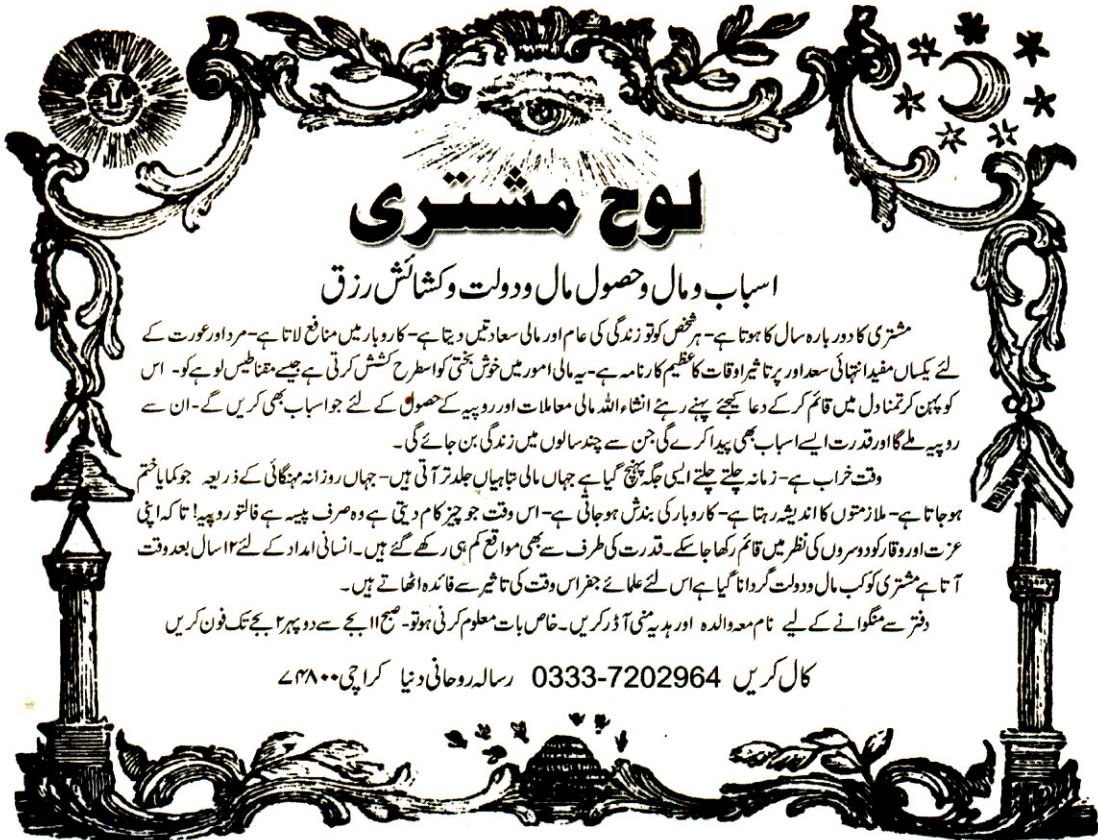 لوح مشتری
اسباب و مال و حصول مال و دولت و کشائش رزق
مشتری کا دور بارہ سال کا ہوتا ہے - ہر شخص کو تو زندگی کی عام اور مالی سعادتیں دیتا ہے - کاروبار میں منافع لاتا ہے - مرد اور عورت کے
لئے یکساں مفید انتہائی سعد اور پر تاثیر اوقات کا عظیم کارنامہ ہے - یہ مالی امور میں خوش بختی کو اسطرح کشش کرتی ہے جیسے مقناطیس لوہے کو - اس
کو پہن کر تمنا دل میں قائم کر کے دعا کیجئے پہنے رہئے انشاء اللہ مالی معاملات اور روپیہ کے حصول کے لئے جو اسباب بھی کریں گے - ان سے
روپیہ ملے گا اور قدرت ایسے اسباب بھی پیدا کرے گی جن سے چند سالوں میں زندگی بن جائے گی ۔
وقت خراب ہے - زمانہ چلتے چلتے ایسی جگہ پہنچ گیا ہے جہاں مالی تباہیاں جلد تر آتی ہیں - جہاں روزانہ مہنگائی کے ذریعہ جو کمایا ختم
ہو جاتا ہے - ملازمتوں کا اندیشہ رہتا ہے - کاروبار کی بندش ہو جاتی ہے - اس وقت جو چیز کام دیتی ہے وہ صرف پیسہ ہے فالتو روپیہ! تاکہ اپنی
عزت اور وقار کو دوسروں کی نظر میں قائم رکھا جا سکے ۔ قدرت کی طرف سے بھی مواقع کم ہی رکھے گئے ہیں ۔ انسانی امداد کے لئے ۱۲ سال بعد وقت
آتا ہے مشتری کو کب مال و دولت گردانا گیا ہے اس لئے علمائے جفر اس وقت کی تاثیر سے فائدہ اٹھاتے ہیں ۔
دفتر سے منگوانے کے لیے نام معہ والدہ اور ہدیہ منی آڈر کریں ۔ خاص بات معلوم کرنی ہو تو - صبح ۱۱ بجے سے دوپہر ۲ بجے تک فون کریں
کال کریں 0333-7202964 رسالہ روحانی دنیا کراچی ۷۴۸۰۰